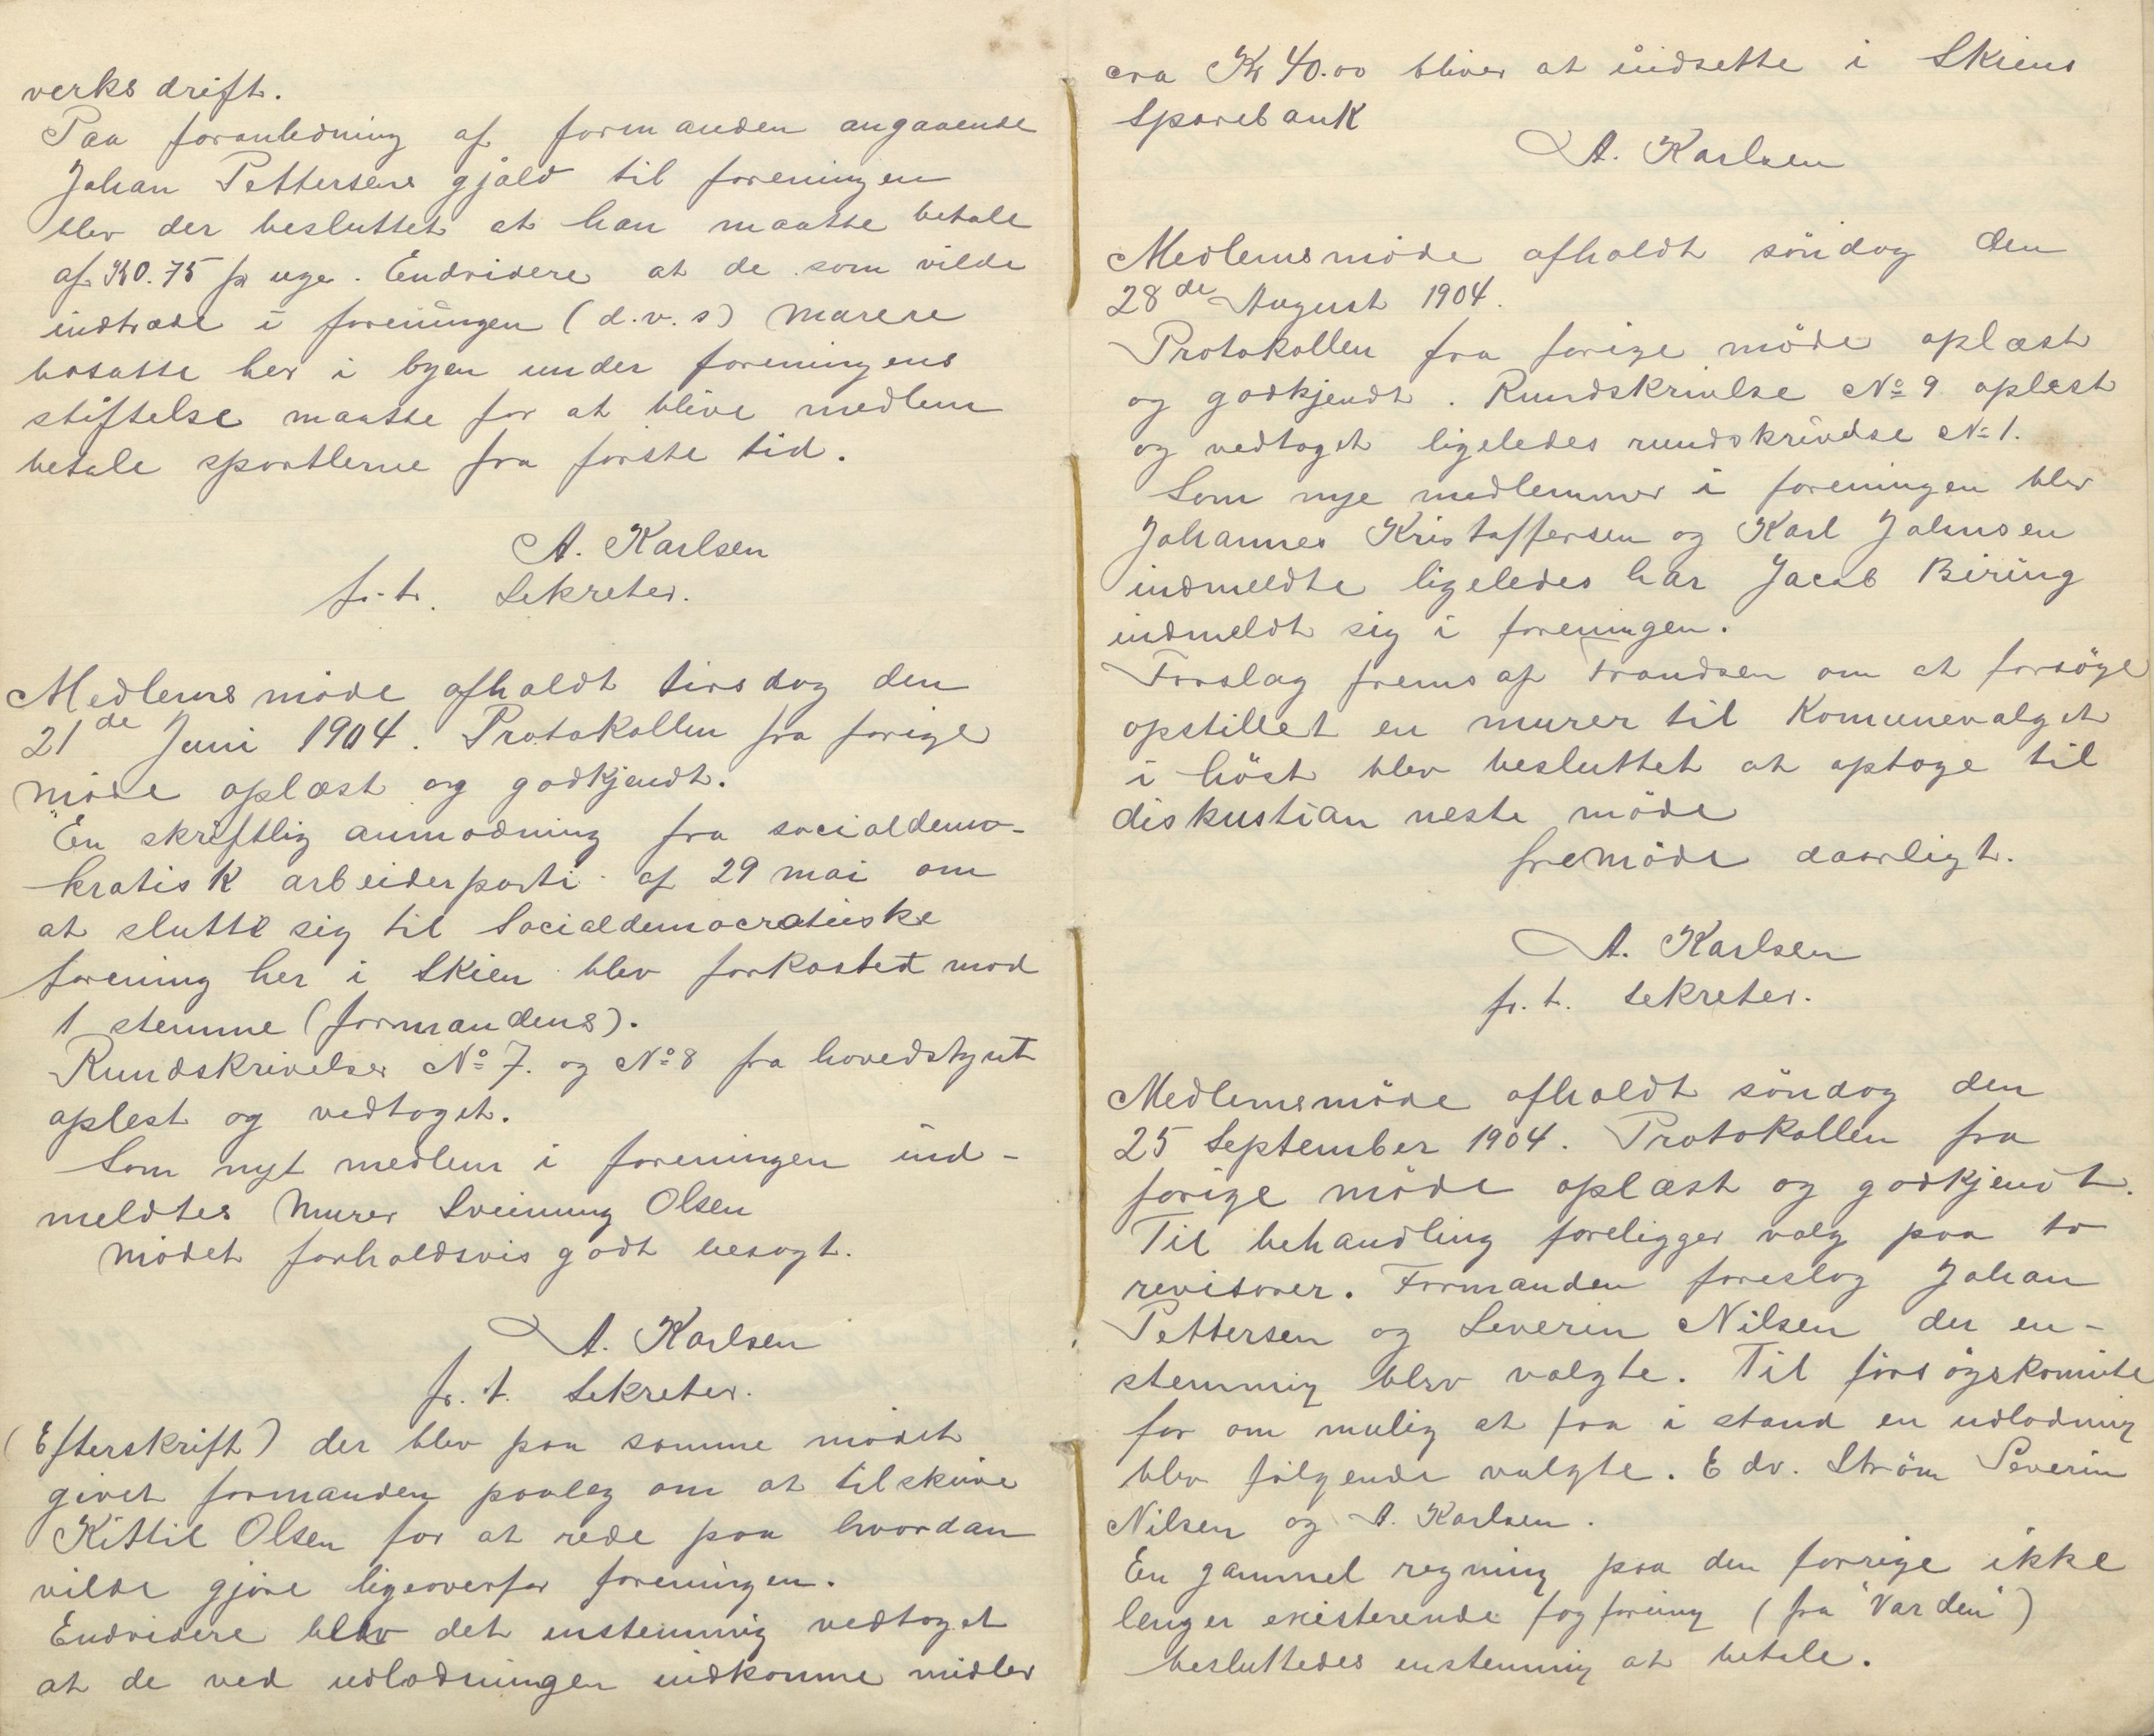 verks drift.
Paa foranledning af formanden angaaende
Johan Pettersens gjåld til foreningen
blev der besluttet at han maatte betale
af K 0.75 pr uge. Endvidere at de som vilde
indtræde i foreningen (d.v.s) Murere
bosatte her i byen under foreningens
stiftelse maatte for at blive medlem
betale sportlerne fra første tid.
A. Karlsen
p.t. Sekretær.
Medlemsmøde afholdt tirsdag den
21de Juni 1904. Protokollen fra forige
møde oplæst og godkjendt.
En skriftlig anmodning fra socialdemo-
kratisk arbeiderparti af 29 mai om
at slutte sig til Socialdemocratiske
forening her i Skien blev forkastet mod
1 stemme (formandens).
Rundskrivelser No 7. og No 8 fra hovedstyret
oplest og vedtaget.
Som nyt medlem i foreningen ind-
meldtes Murer Sveinung Olsen
Mødet forholdsvis godt besøgt.
A. Karlsen
p.t. Sekretær.
(Efterskrift) der blev paa samme mødet
givet formanden paaleg om at tilskrive
Kittil Olsen for at rede paa hvordan
vilde gjøre ligeoverfor foreningen.
Endvidere blev det enstemmig vedtaget
at de ved udlodningen indkomne midler
cra Kr 40.00 bliver at indsette i Skiens
Sparebank
A. Karlsen
Medlemsmøde afholdt söndag den
28de August 1904.
Protokollen fra forige möde oplæst
og godkjendt. Rundskrivlse No 9 oplest
og vedtaget ligeledes rundskrivelse No 1.
Som nye medlemmer i foreningen blev
Johannes Kristoffersen og Karl Johnsen
indmeldte ligeledes har Jacob Biring
indmeldt sig i foreningen.
Forslag frems af Frandsen om at forsöge
opstillet en murer til Komunevalget
i höst blev besluttet at optage til
diskustian neste möde
fremöde daarligt.
A. Karlsen
p.t. Sekretær.
Medlemsmöde afholdt söndag den
25 September 1904. Protokollen fra
forige möde oplæst og godkjendt.
Til behandling foreligger valg paa to
revisorer. Formanden foreslog Johan
Pettersen og Severin Nilsen der en-
stemmig blev valgte. Til forsögskomite
for om mulig at faa i stand en udlodning
blev fölgende valgte. Edv. Ström Severin
Nilsen og A. Karlsen.
En gammel regning paa den forrige ikke
lenger existerende fagforening (fra "Varden")
besluttedes enstemmig at betale.